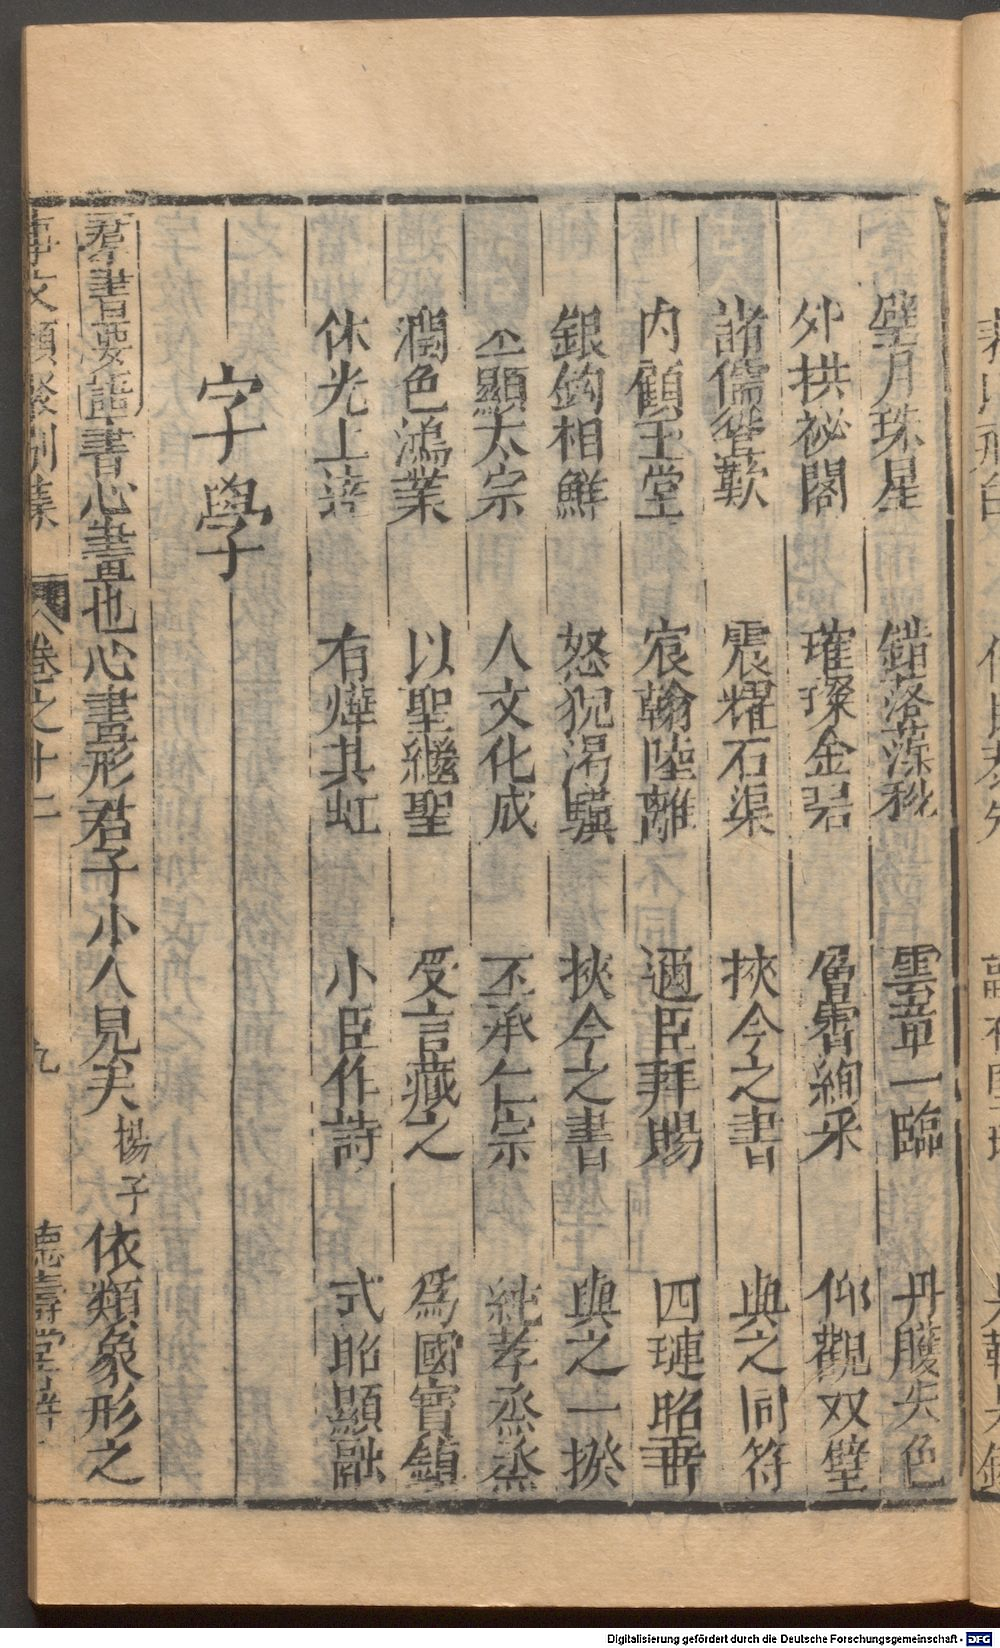 璧月珠星　錯落藻梲　雲章一臨　丹雘失色
外拱祕閣　璀璨金碧　層霄絢采　仰觀双璧
諸儒聳歎　震耀石渠　挾今之書　與之同符
内顧玉堂　宸翰陸離　邇臣拜賜　四璉昭垂
銀鈎相鮮　怒猊渴驥　挾今之書　與之一揆
丕顯太宗　人文化成　丕承仁宗　純孝烝烝
潤色鴻業　以聖繼聖　受言藏之　爲國寶鎮
休光上達　有燁其虹　小臣作詩　式昭顯融
字學
羣書要語書心畫也心畫形君子小人見矣揚子依類象形之
事文類聚別集　八卷之十二　九　德壽堂梓
Digitalisierung gefördert durch die Deutsche Forschungsgemeinschaft - DFG